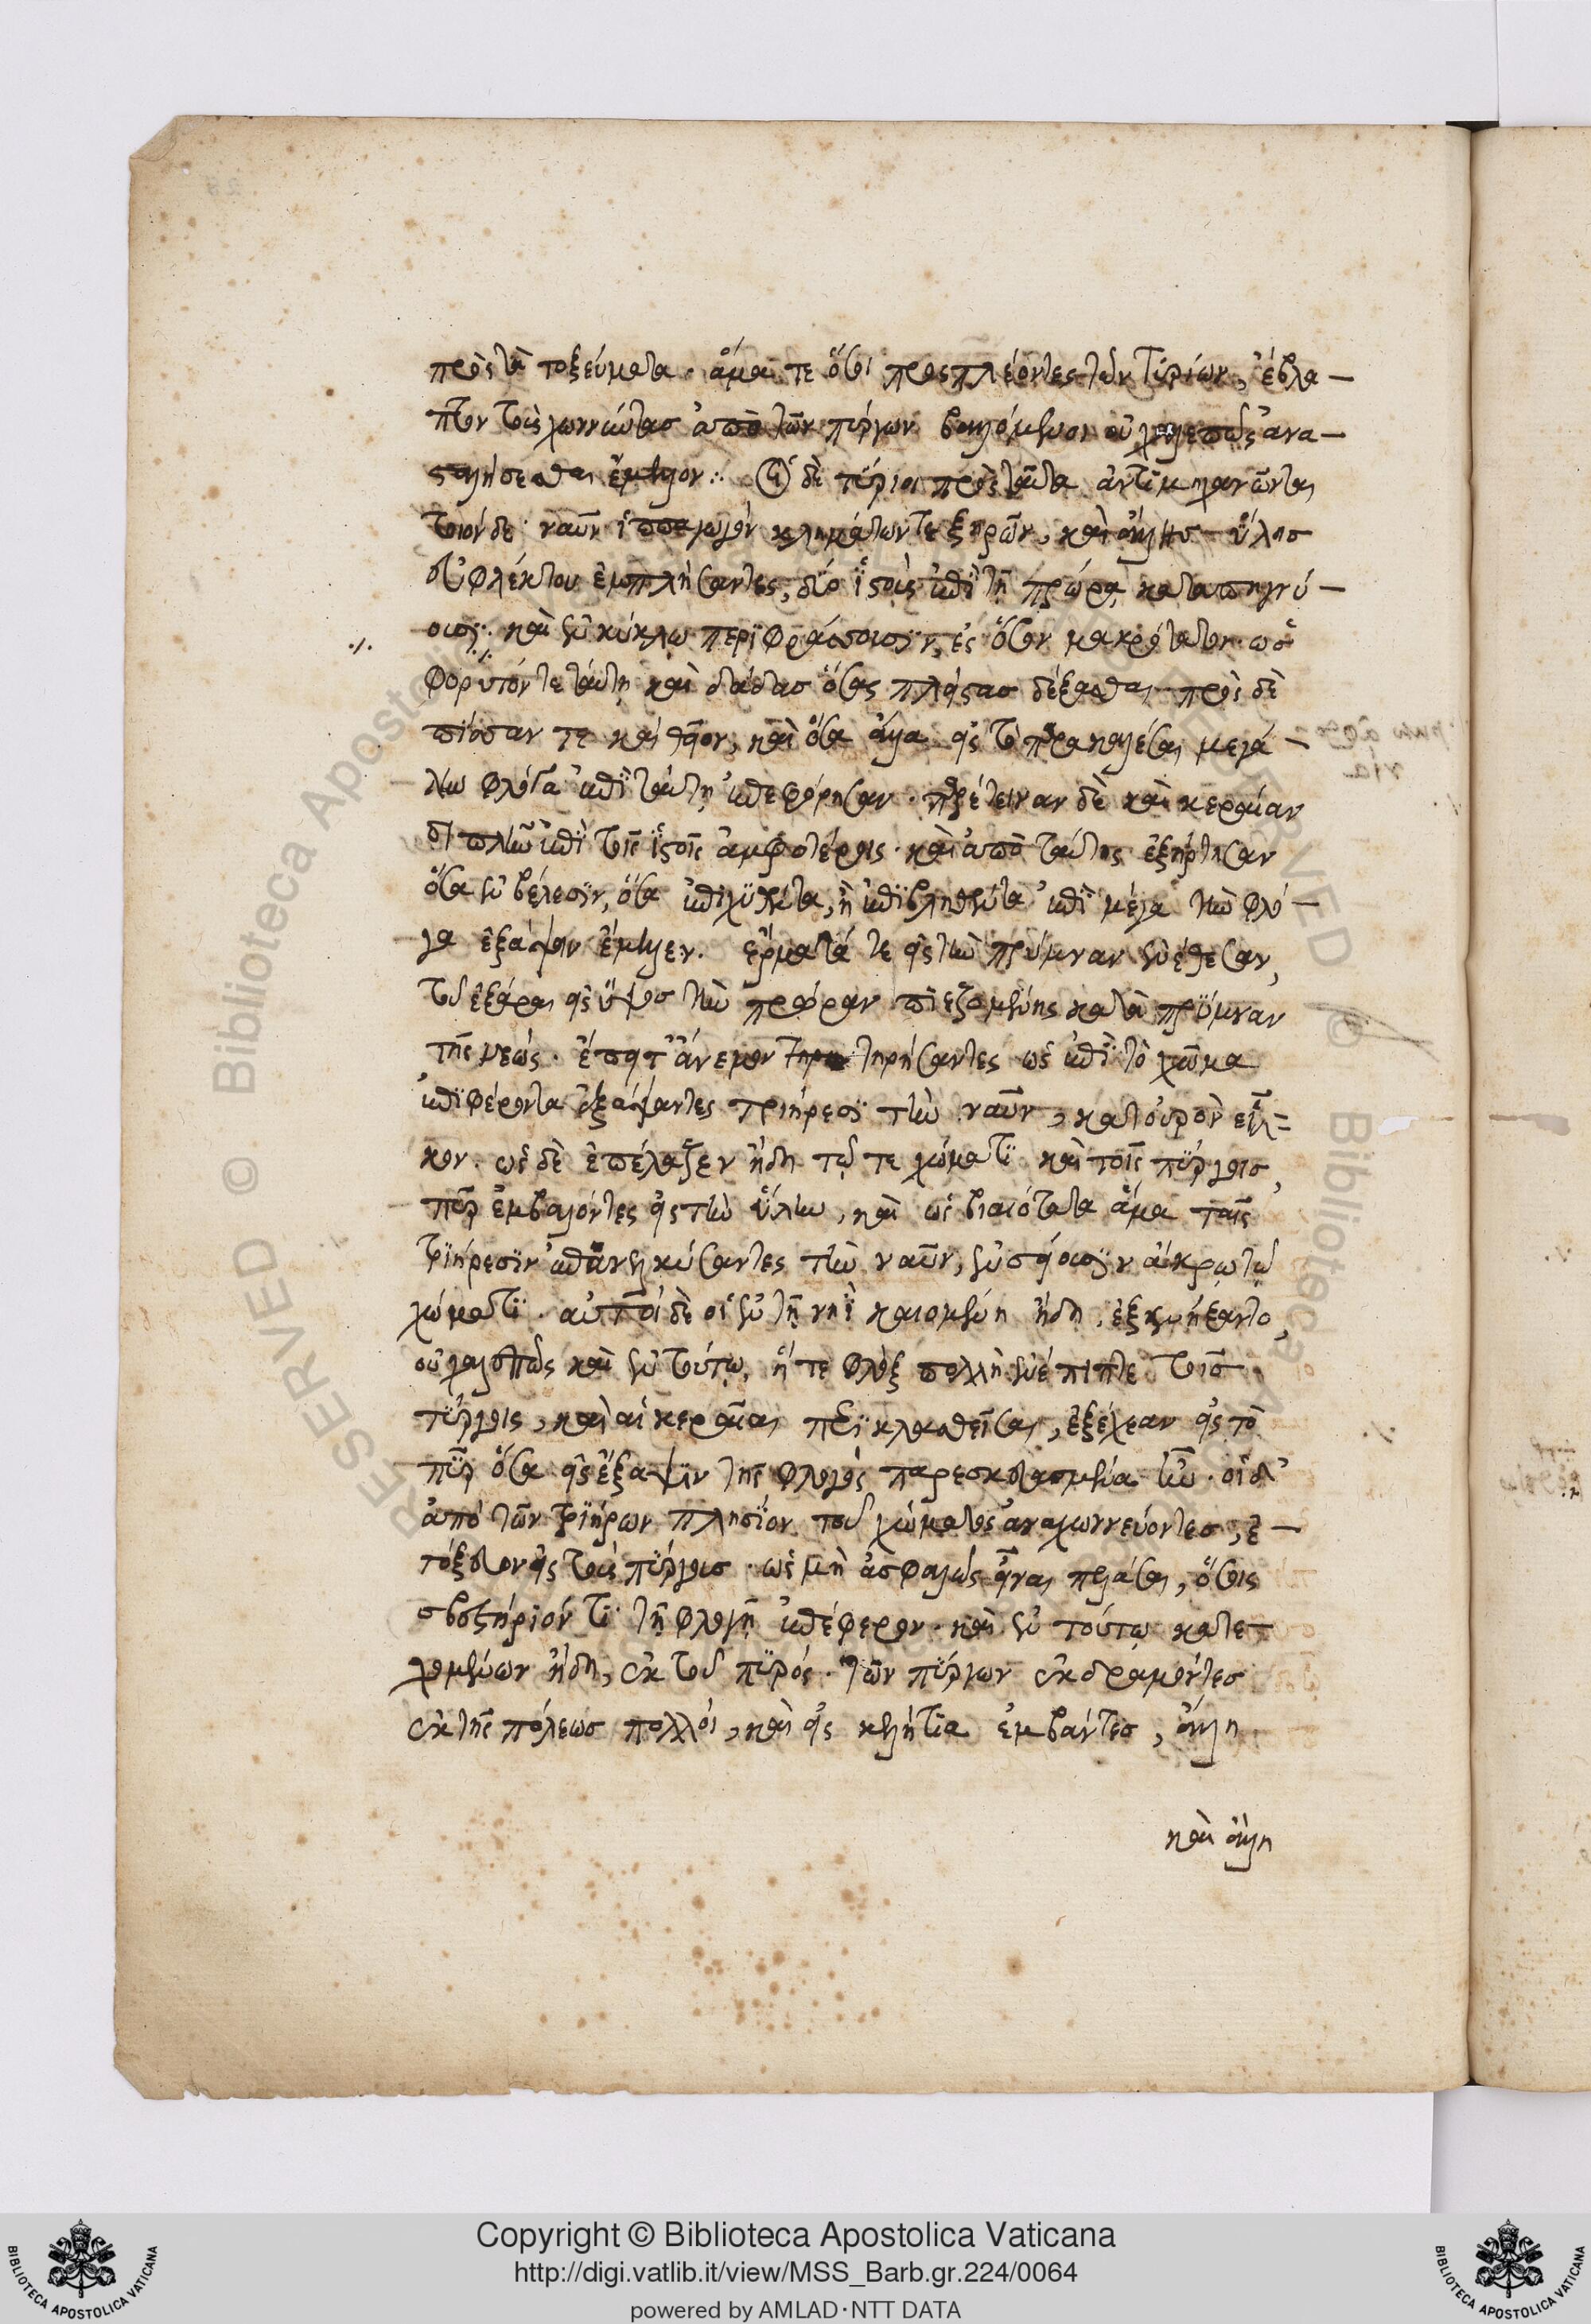 πρὸς τὰ τοξεύματα. ἅμα τε ὅσοι προσπλέοντες τῶν τυρίων, ἔβλα-
πτον τοὺς χωννύντας ἀπὸ τῶν πύργων βαλλόμενοι οὐ χαλεπῶς ἀνα-
σταλήσεσθαι ἔμελλον: Οἱ δὲ τύριοι πρὸς ταῦτα ἀντιμηχανῶνται
τοιόνδε ναῦν ἱππαγωγὸν κλημάτων τε ξηρῶν, καὶ ἄλλης ὕλης
εὐφλέκτου ἐμπλήσαντες, δύο ἱστοὺς ἐπὶ τῇ πρώρᾳ καταπηγνύ-
ουσι: καὶ ἐν κύκλω περιφράσσουσιν, ἐς ὅσον μακρότατον. ὡς
φορυτόν τε ταύτη καὶ δᾶδας ὅσας πλήστας δέξασθαι. πρὸς δὲ
πίσσαν τε καὶ θεῖον, καὶ ὅσα ἄλλα εἰς τὸ παρακαλέσαι μεγά-
λην φλόγα ἐπὶ ταύτη ἐπεφόρησαν. παρέτειναν δὲ καὶ κεραίαν
διπλῆν ἐπὶ τοῖς ἱστοῖς ἀμφοτέροις. καὶ ἀπὸ ταύτης ἐξήρτησαν
ὅσα ἐν λέβεσιν, ὅσα ἐπιχυθέντα, ἢ ἐπιβληθέντα ἐπὶ μέγα τὴν φλό-
γα ἐξάψειν ἔμελλεν. ἕρματά τε εἰς τὴν πρύμναν ἐνέθεσαν,
τοῦ ἐξάραι εἰς ὕψος τὴν πρώραν πιεζομένης κατὰ πρύμναν
τῆς νεώς. ἔπειτ' ἄνεμον τηρήσαντες ὡς ἐπὶ τὸ χῶμα
ἐπιφέροντα ἐξάψαντες τριήρεσι τὴν ναῦν, κατ' οὐρὰν εἷλ=
κον. ὡς δὲ ἐπέλαζεν ἤδη τῷ τε χώματι καὶ τοῖς πύργοις,
πῦρ ἐμβαλόντες εἰς τὴν ὕλην, καὶ ὡς βιαιότατα ἅμα ταῖς
τριήρεσιν ἐπανελκύσαντες τὴν ναῦν, ἐνσείουσιν ἄκρω τῷ
χώματι. αὐτοὶ δὲ οἱ ἐν τῇ νηῒ καιομένη ἤδη, ἐξενήξαντο,
οὐ χαλεπῶς καὶ ἐν τούτῳ, ἥ τε φλὸξ πολλὴ ἐνέπιπτε τοῖς
πύργοις, καὶ αἱ κεραῖαι περικλασθεῖσαι, ἐξέχεαν εἰς τὸ
πῦρ ὅσα εἰς ἔξαψιν τῆς φλογὸς παρεσκευασμένα ἦν. οἱ δ'
ἀπὸ τῶν τριήρων πλησίον τοῦ χώματος ἀναχωννεύοντες, ἐ-
τόξευον εἰς τοὺς πύργους. ὡς μὴ ἀσφαλὲς εἶναι πελάσαι, ὅσοις
σβεστήριόν τι τῇ φλογῇ ἐπέφερον. καὶ ἐν τούτῳ κατε-
χομένων ἤδη, ἐκ τοῦ πυρός. τῶν πύργων ἐκδραμόντες
ἐκ τῆς πόλεως πολλοί, καὶ εἰς κελήτια ἐμβάντες, ἄλλη
καὶ ἄλλη
Copyright © Biblioteca Apostolica Vaticana
http://digi.vatlib.it/view/MSS_Barb.gr.224/0064
powered by AMLAD·NTT DATA